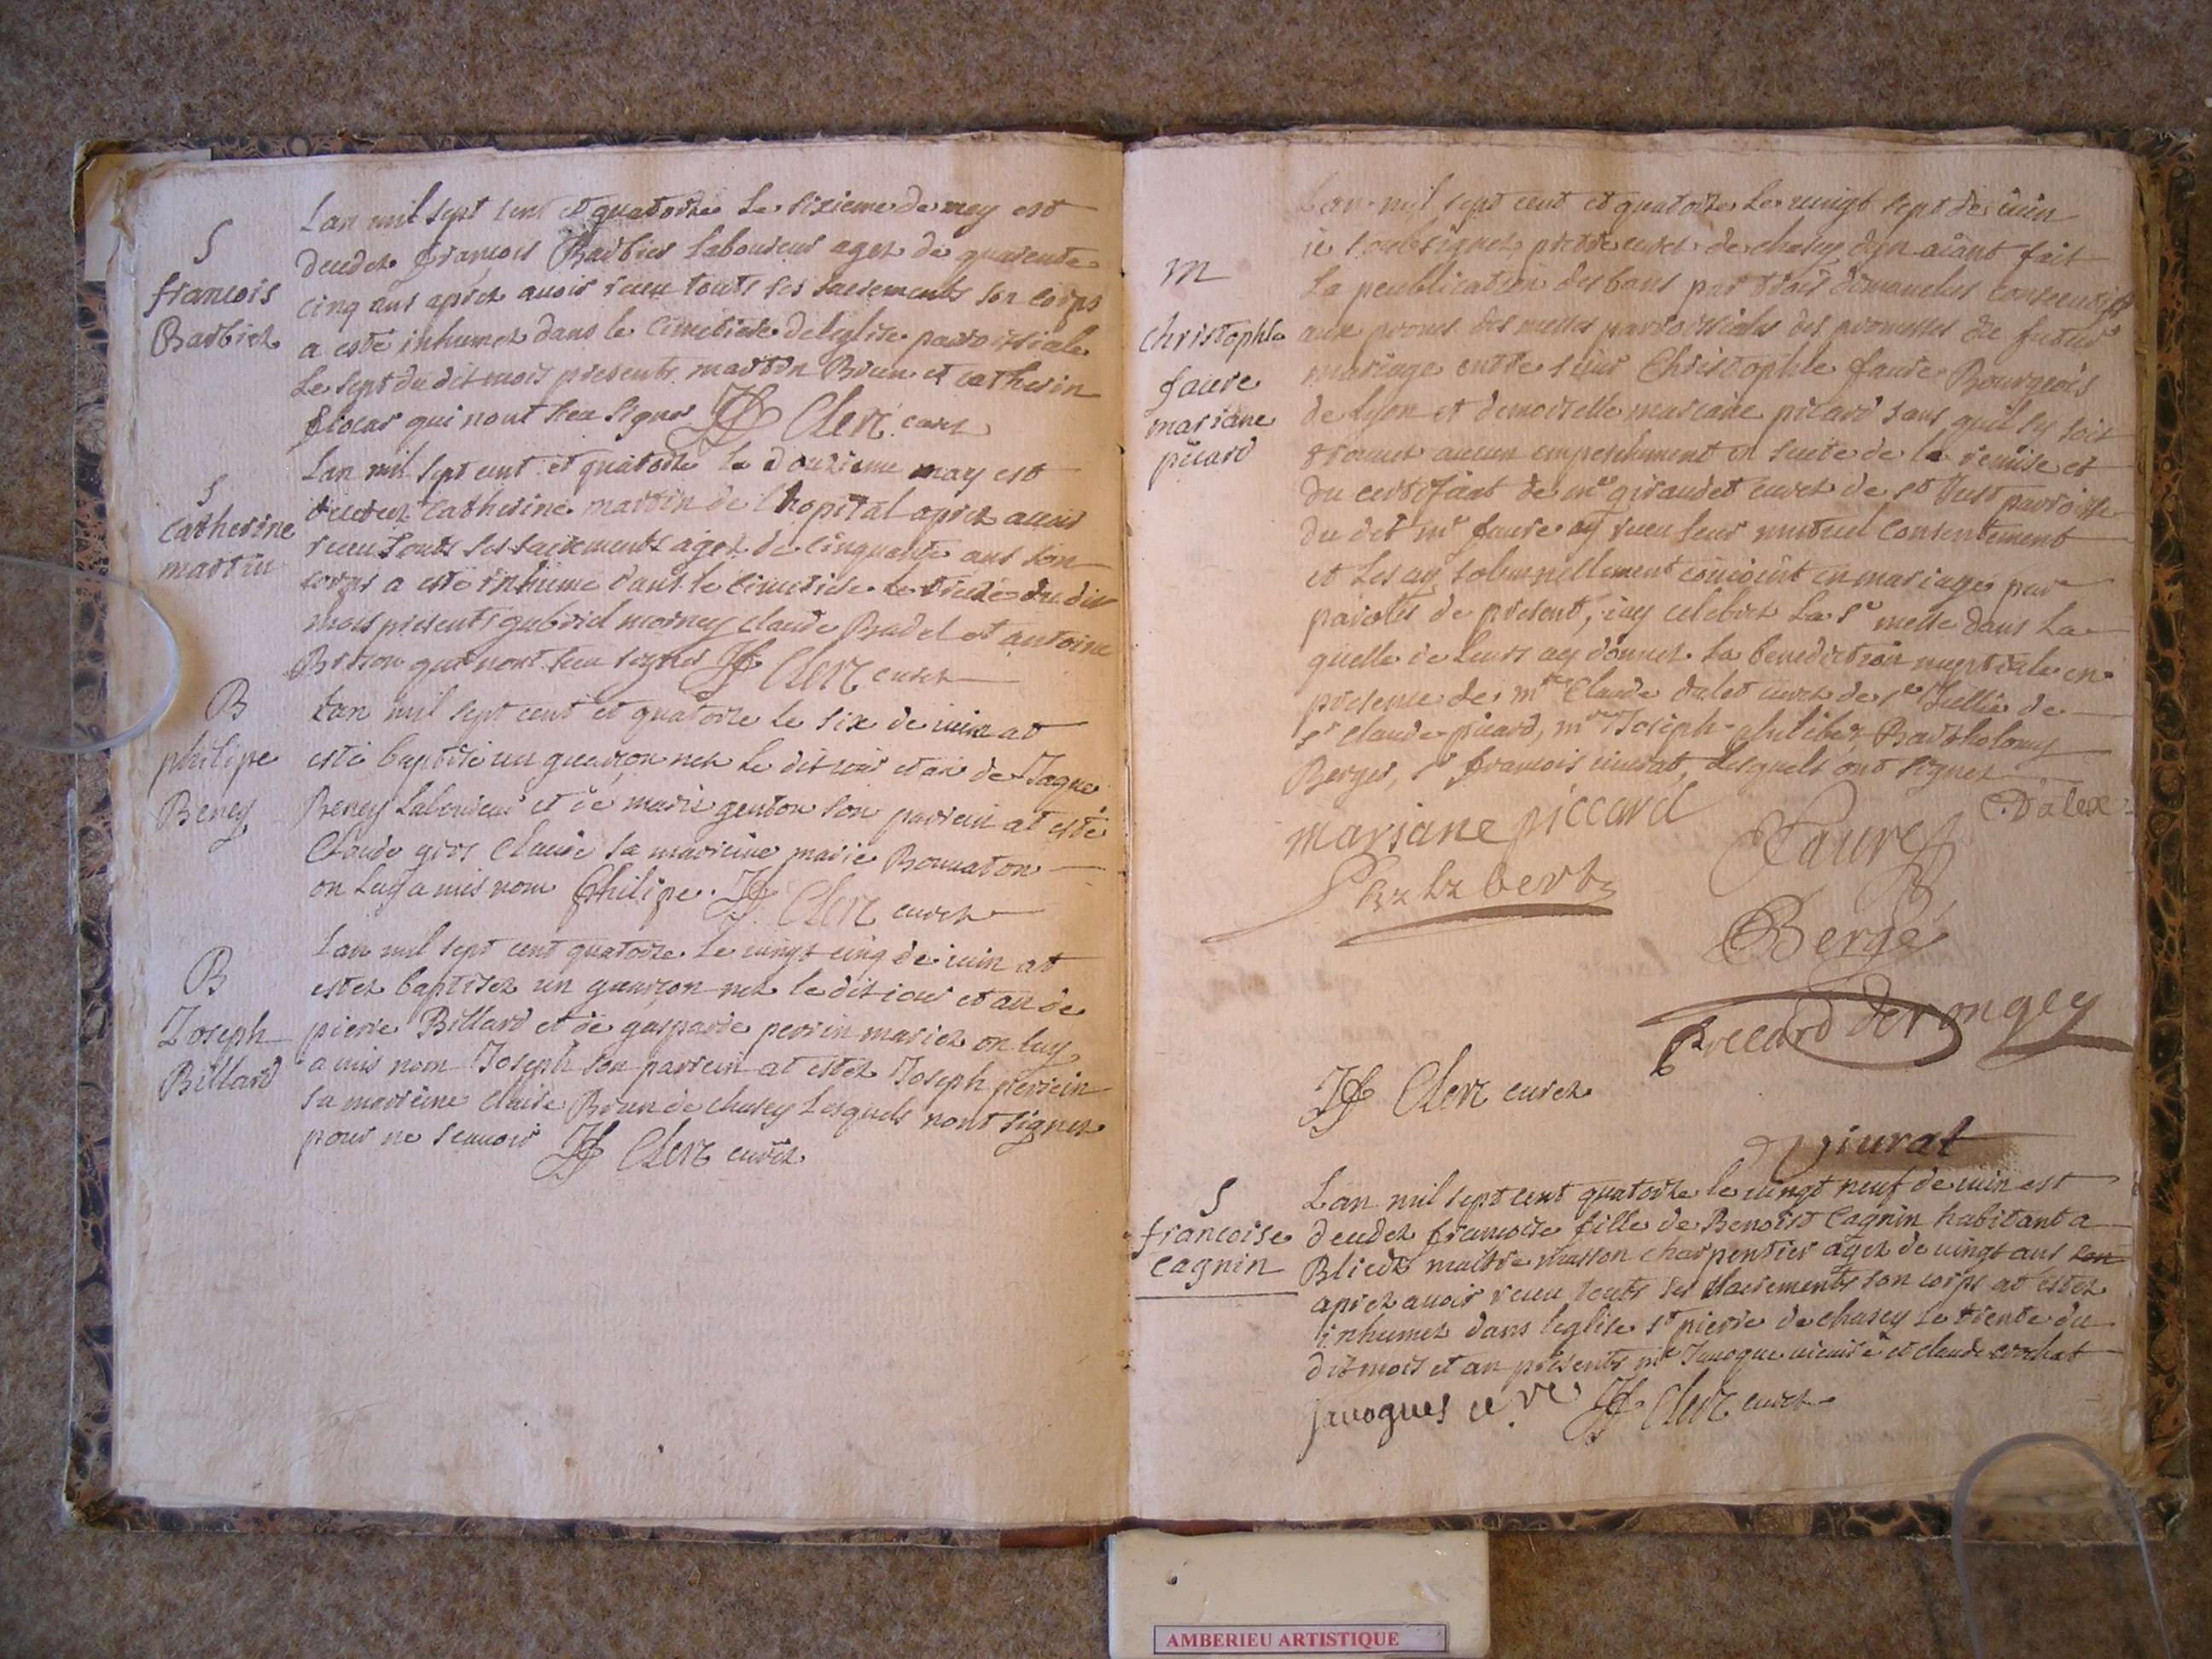 S
francois
Barbiez
Lan mil sept cent et quatorze Le sixieme de mey est
decedez françois Barbier Laboureur agez de quarente
cinq ans aprez auoir receu touts ses sacrements son corps
a esté inhumez dans le cimetiere de leglise parroissiale
Le sept du dit mois presents martin Brun et catherin
qui nont sceu signer Clerc curez
S
catherine
martin
Lan mil sept cent et quatorze le douzieme may est
decedez Catherine martin de lhopital aprez auoir
receu touts ses sacrements agez de cinquante ans son
corps a esté inhume dans le cimetiere le treize du dit
mois presents gabriel morney claude Badel et antoine
Brison qui nont sceu signer Clerc curez
B
philipe
Beney
Lan mil sept cent et quatorze le six de iuin at
esté baptisé un guarçon nez le dit iour et an de Jaque
Beney Laboureur et de marie genton son parrein at esté
Claude gros Claude sa marreine marie Bonnaton
on Luy a mis nom Philipe. Clerc curez
B
Joseph
Billard
Lan mil sept cent quatorze le uingt cinq de iuin at
estez baptisez un guarçon nez le dit iour et an de
pierre Billard et de gasparde perrin mariez on luy
a mis nom Joseph son parrein at estez Joseph perrein
sa marreine claire Brun de chasey Lesquels nont signez
pour ne scauoir Clerc curez
M
christophle
faure
mariane
picard
Lan mil sept cent et quatorze Le uingt sept de iuin
ie soubsignez, prettre curez de chasey dyn aiant fait
La peublication des bans par trois dimanches consecutifs
aux prones des messes parroissiales des promesses de futur
mariage entre sieur Christophle faure Bourgeois
de Lyon et demoiselle mariane picard sans quil sy soit
trouuez aucun empeschement en suite de la remise et
du certifiant de mre giraudet curez de st Just parroisse
du dit mr faure ay receu leur mutuel consentement
et Les ay solemnellement conioint en mariage par
paroles de present, iay celebrez La Ste messe dans La
quelle ie Leurs ay donnez la benediction nuptiale en
presence de mre Claude dalex curez de ste Jullie de
sr Claude picard, mre Joseph philibert Bartholomy
Berger, sr francois uiurat, Lesquels ont signez
marjane piccard
Faure
C. Dalex
Phzlzbertz
Bergé
Piccard Dermgey
Clerc curez
Viurat
S
francoise
Cagnin
Lan mil sept cent quatorze le uingt neuf de iuin est
decedez francoise fille de Benoist Cagnin habitant a
Blied maitre masson charpentier agez de uingt ans son
aprez auoir receu touts ses sacrements son corps at estez
inhumez dans leglise st pierre de chasey Le trente du
dit mois et an presents mre Jauogue uicaire et claude crochat
jauogues Clerc curez
AMBERIEU ARTISTIQUE